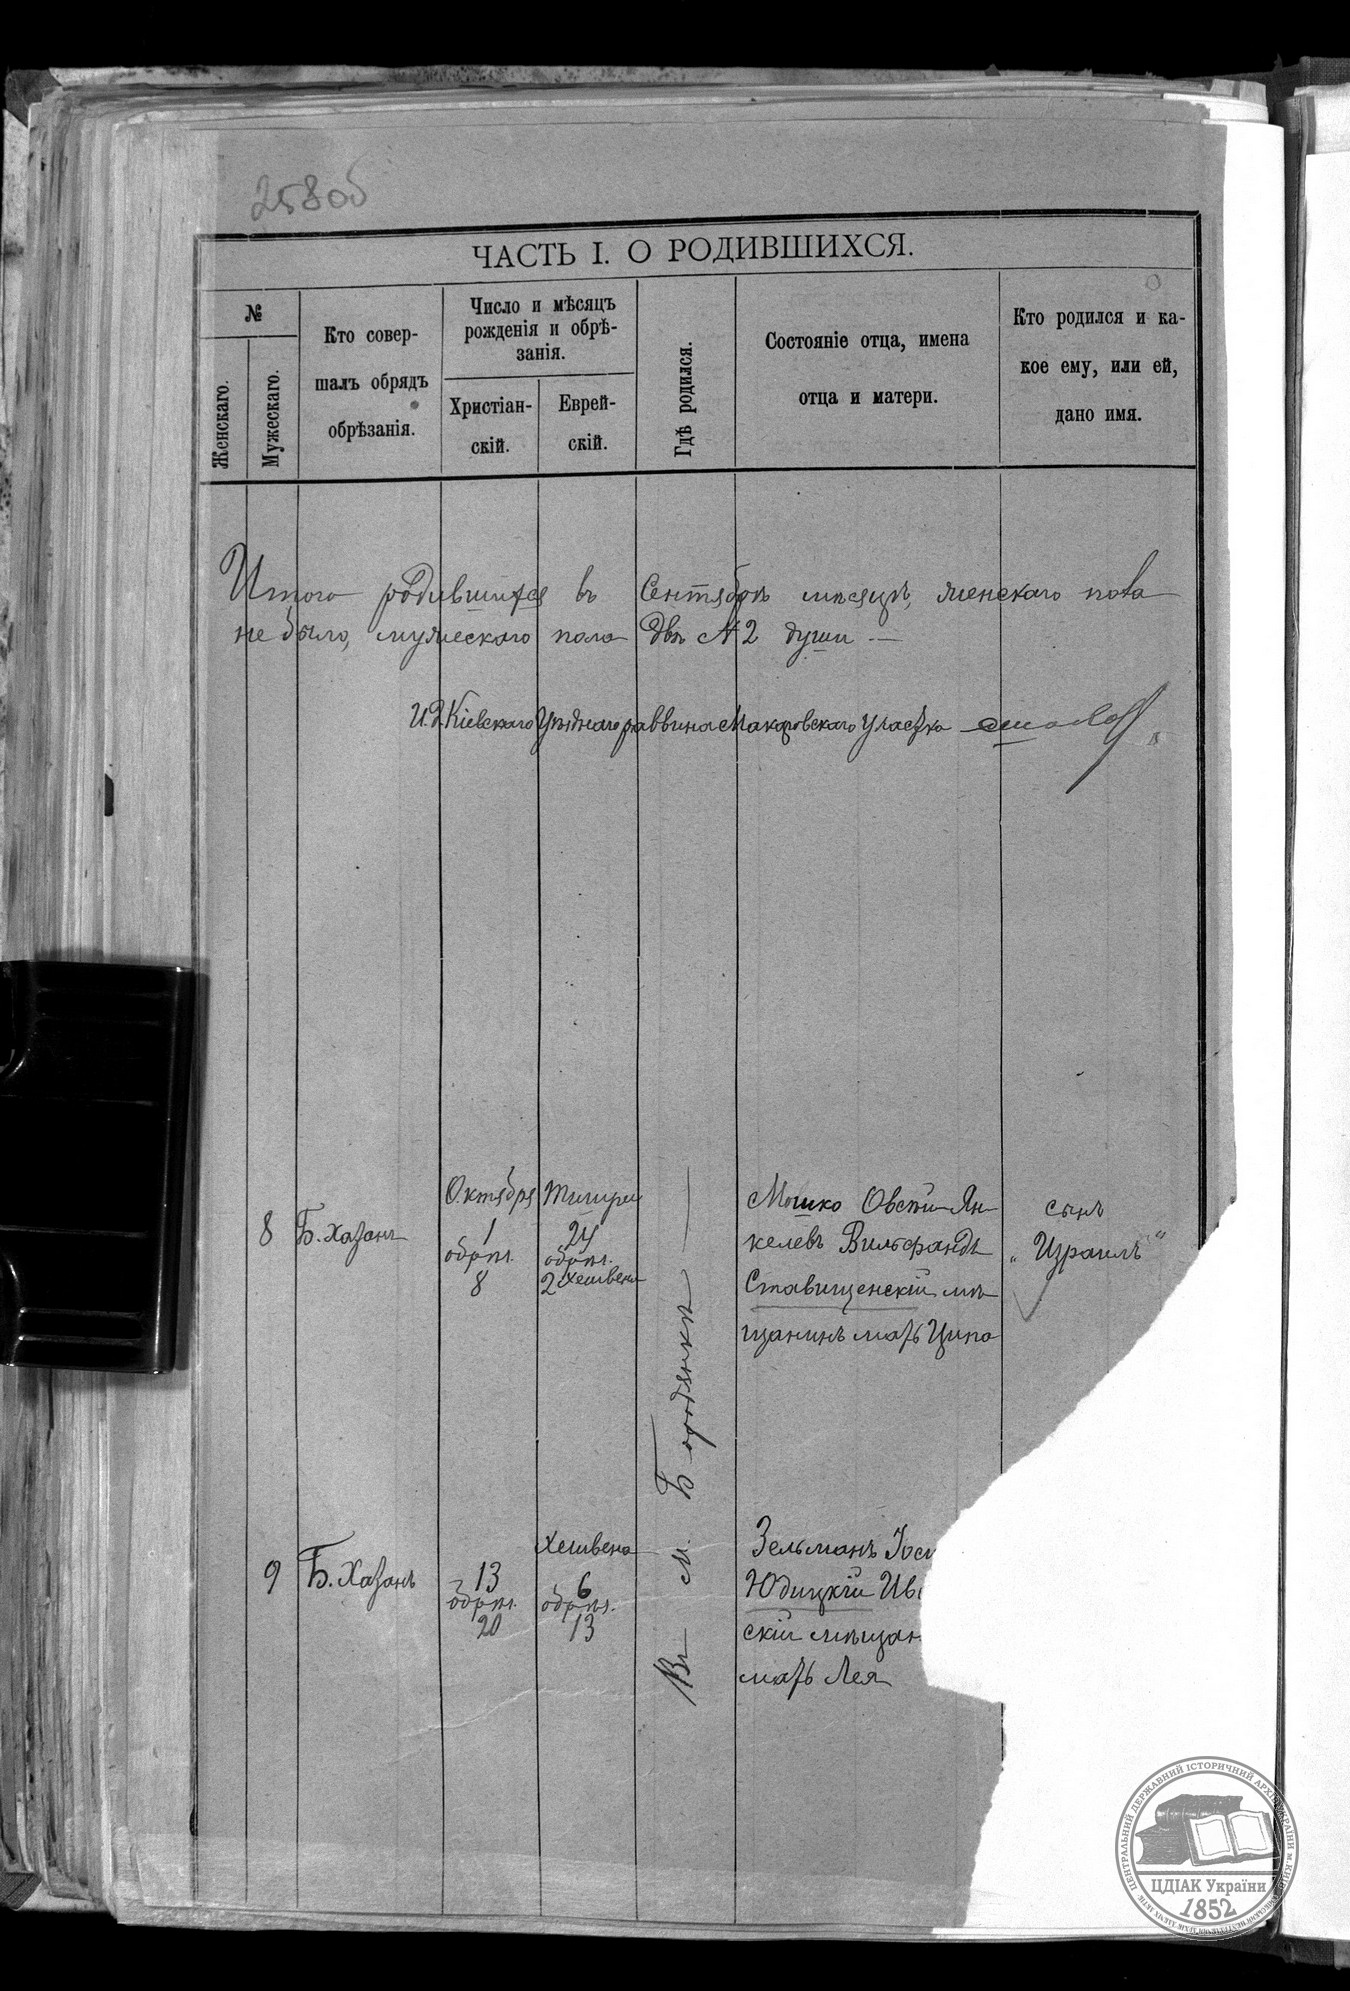 258об
ЧАСТЬ I. О РОДИВШИХСЯ.
№
Женскаго.
Мужескаго.
Кто совер-
шалъ обрядъ
обрѣзанія.
Число и мѣсяцъ
рожденія и обрѣ-
занія.
Христіан-
скій.
Еврей-
скій.
Гдѣ родился.
Состояніе отца, имена
отца и матери.
Кто родился и ка-
кое ему, или ей,
дано имя.
Итого родившихся въ Сентябрѣ мѣсяцѣ, женскаго пола
не было, мужескаго пола двѣ № 2 души —
И.д. Кіевскаго Уѣзднаго раввина Макаровскаго Участка
8
Б. Хазанъ
Октября
1
обрѣз.
8
Тишри
24
обрѣз.
2 Хешвена
Въ м. Бородянкѣ
Мошко Овсѣй Ян-
келевъ Вильфандъ
Ставищенскій мѣ-
щанинъ мать Ципа
сынъ
„Израиль"
9
Б. Хазанъ
13
обрѣз.
20
Хешвена
6
обрѣз.
13
Зельманъ Іос
Юдицкій Ив
скій мѣщан
мать Лея
ЦЕНТРАЛЬНИЙ ДЕРЖАВНИЙ ІСТОРИЧНИЙ АРХІВ УКРАЇНИ м. КИЇВ
ЦДІАК України
1852